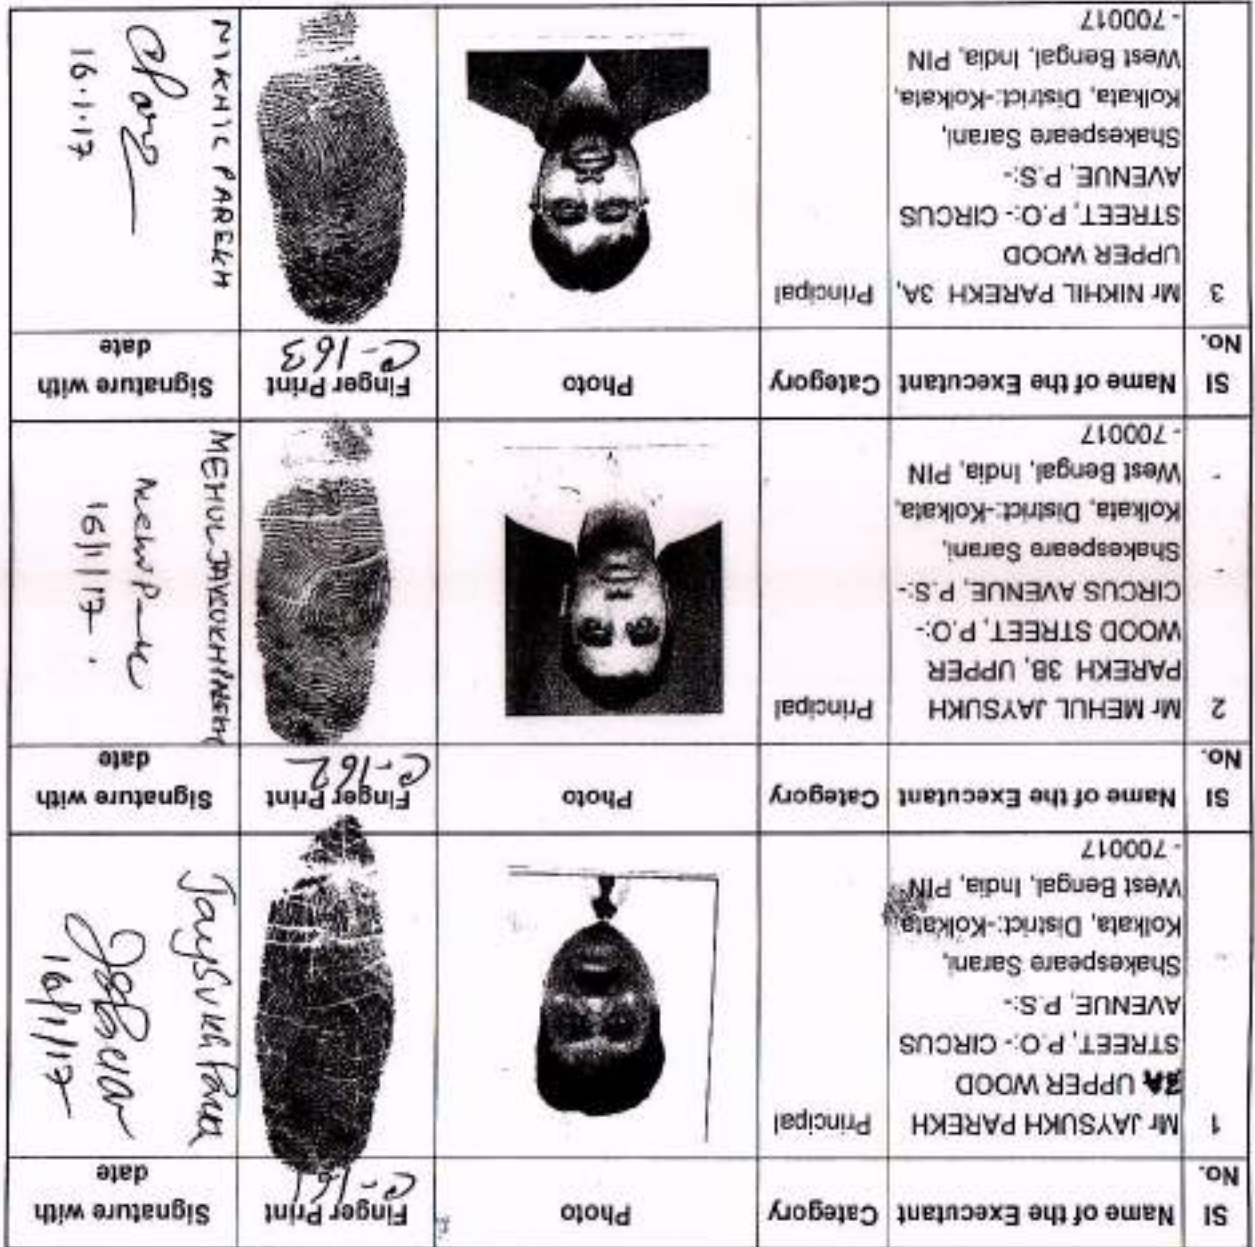 Sl No. Name of the Executant Category Photo Finger Print Signature with date
C-161
1 Mr JAYSUKH PAREKH Principal
3A UPPER WOOD
STREET, P.O:- CIRCUS
AVENUE, P.S:-
Shakespeare Sarani,
Kolkata, District:-Kolkata,
West Bengal, India, PIN
- 700017
Jaysukh Parekh
16/1/17
Sl No. Name of the Executant Category Photo Finger Print Signature with date
C-162
2 Mr MEHUL JAYSUKH Principal
PAREKH 3B, UPPER
WOOD STREET, P.O:-
CIRCUS AVENUE, P.S:-
Shakespeare Sarani,
Kolkata, District:-Kolkata,
West Bengal, India, PIN
- 700017
MEHUL JAYSUKH PAREKH
16/1/17.
Sl No. Name of the Executant Category Photo Finger Print Signature with date
C-163
3 Mr NIKHIL PAREKH 3A, Principal
UPPER WOOD
STREET, P.O:- CIRCUS
AVENUE, P.S:-
Shakespeare Sarani,
Kolkata, District:-Kolkata,
West Bengal, India, PIN
- 700017
NIKHIL PAREKH
16.1.17